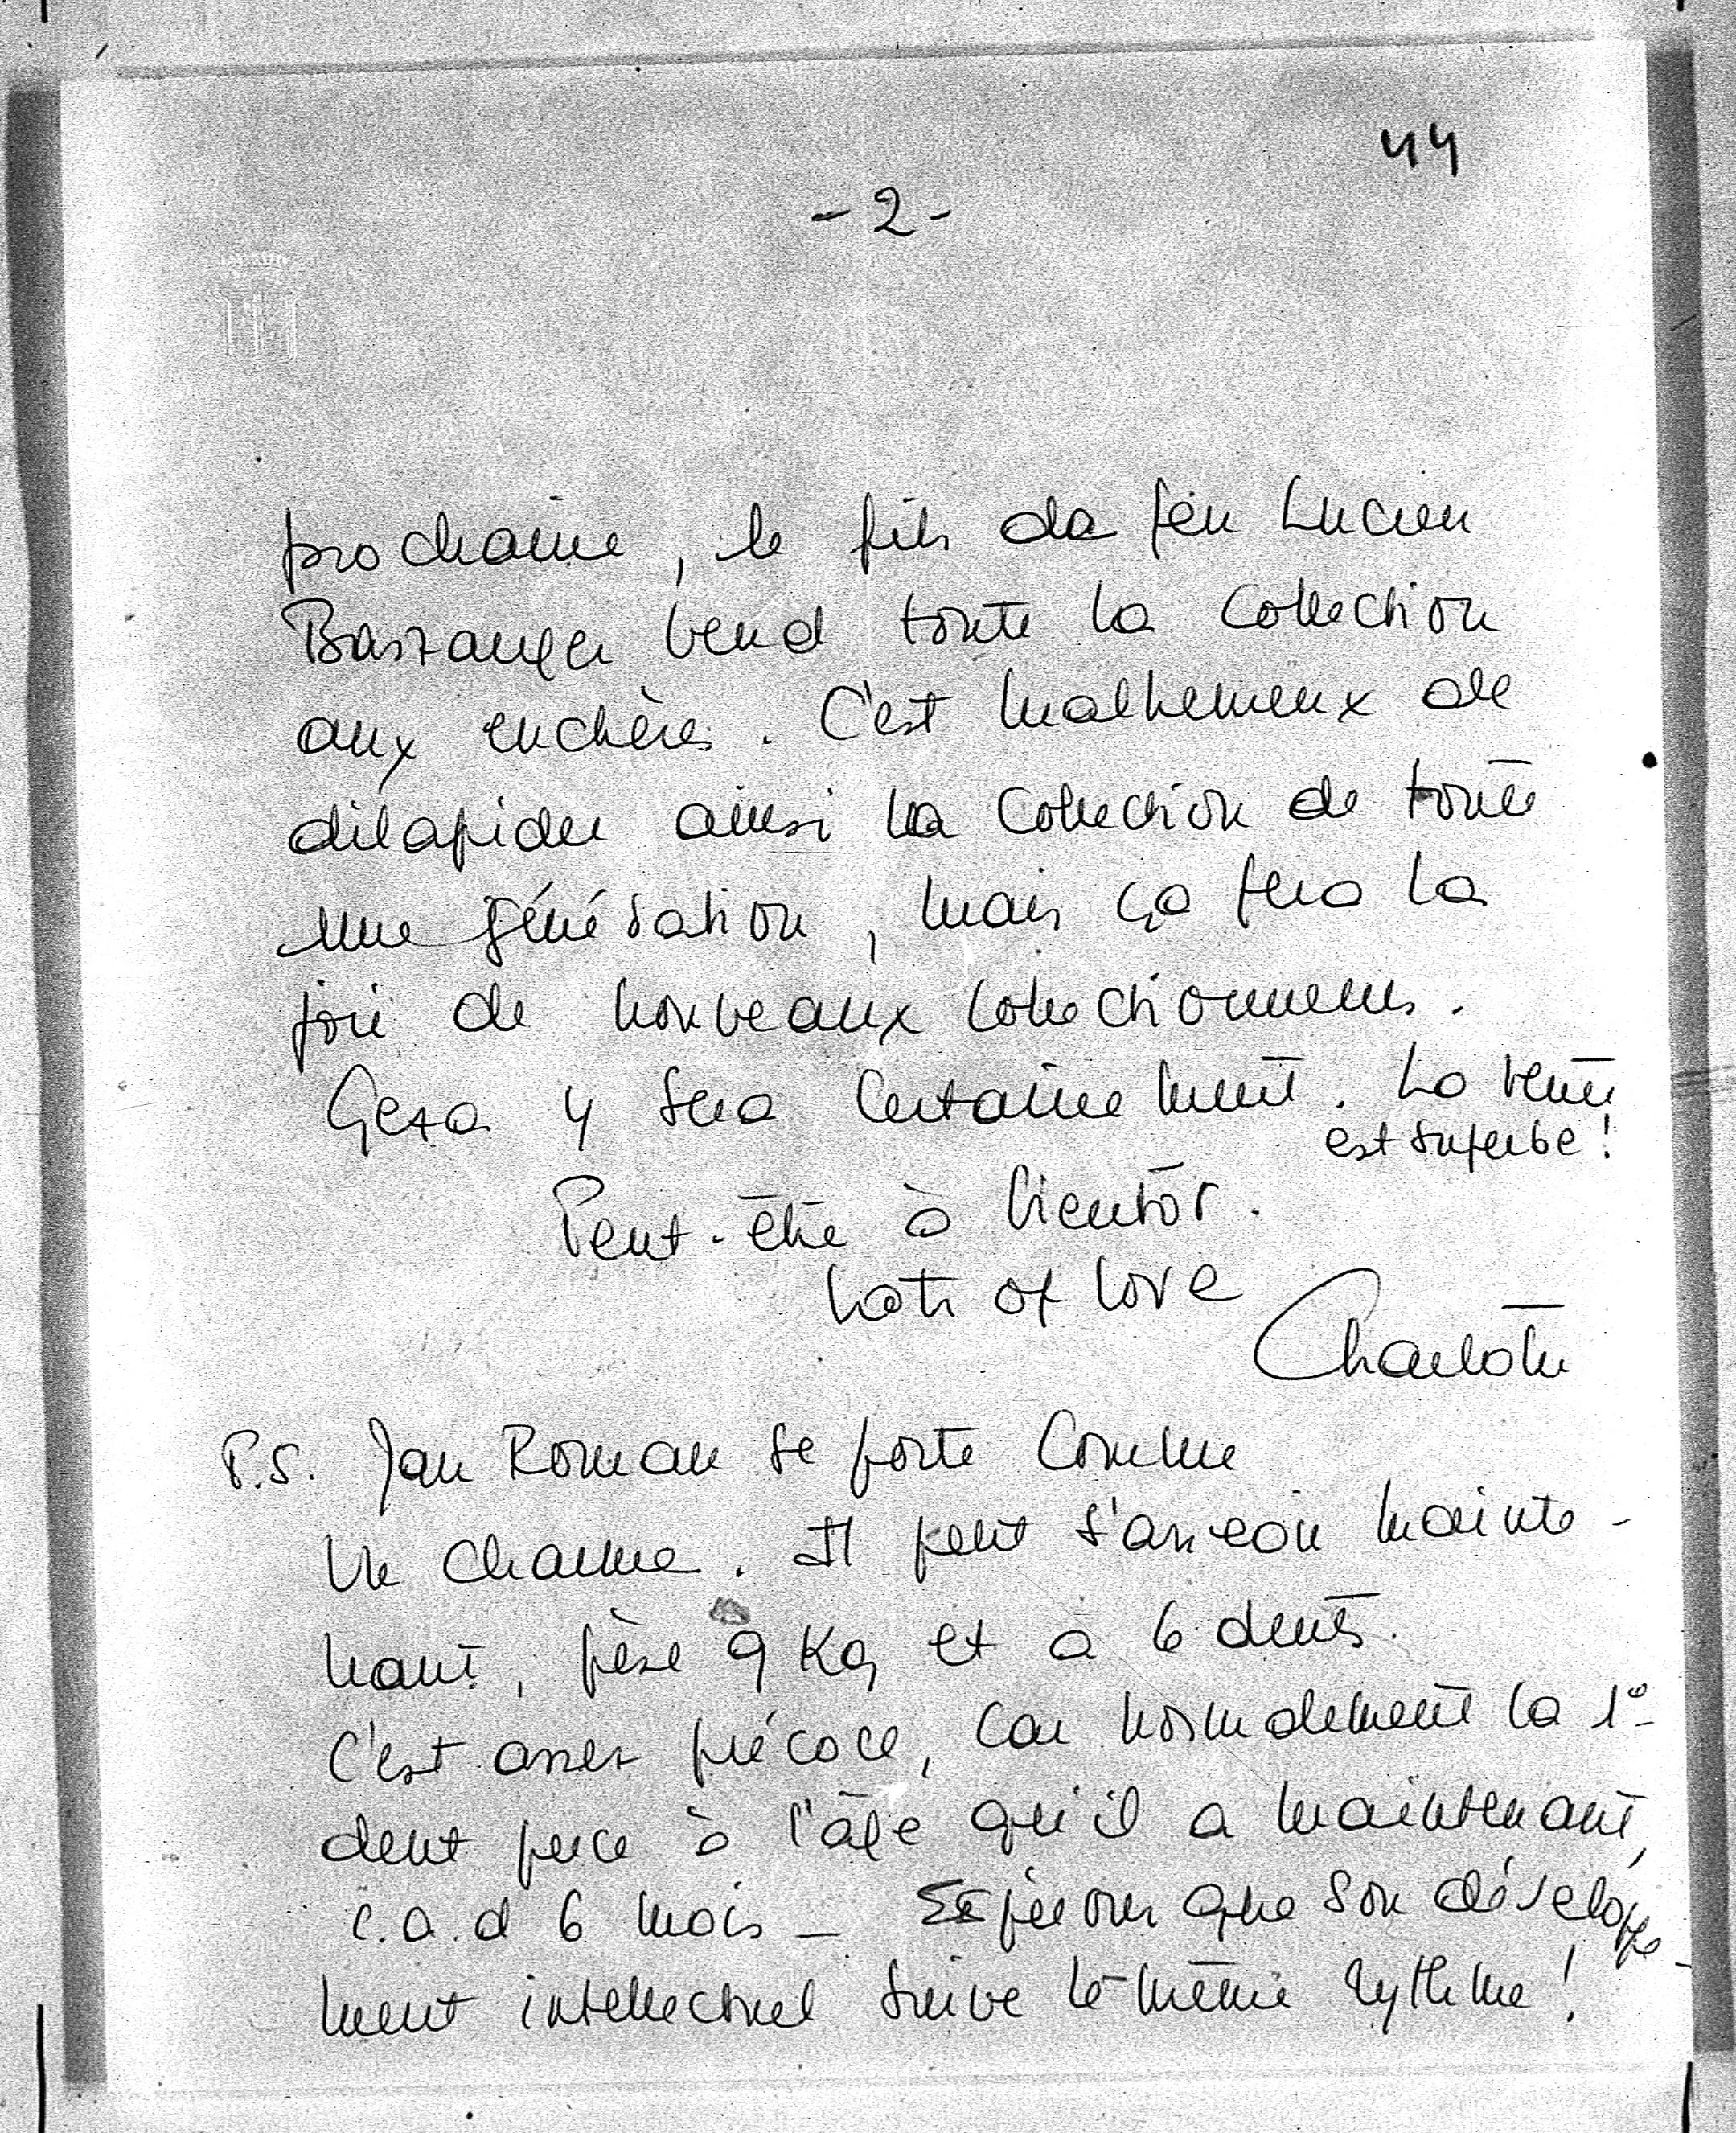 44
- 2 -
prochaine, le fils de feu Lucien
Baszanger vend toute la collection
aux enchères. C'est malheureux de
dilapider ainsi la collection de toute
une génération, mais ça fera la
joie de nouveaux collectionneurs.
Geza y sera certainement. La vente
est superbe!
Peut-être à bientôt.
Lots of love
Charlotte
P.S. Jan Roman se porte comme
un charme. Il peut s'asseoir mainte-
nant, pèse 9 Kg et a 6 dents.
C'est assez précoce, car normalement la 1°
dent perce à l'âge qu'il a maintenant,
c.a.d 6 mois - Espérons que son développe-
ment intellectuel suive le même rythme!